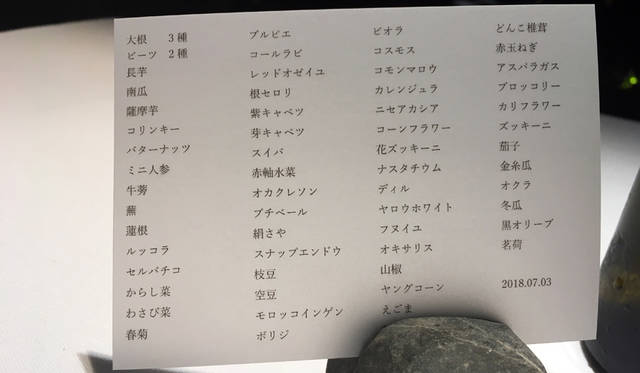 大根　3種
ビーツ　2種
長芋
南瓜
薩摩芋
コリンキー
バターナッツ
ミニ人参
牛蒡
蕪
蓮根
ルッコラ
セルバチコ
からし菜
わさび菜
春菊
プルピエ
コールラビ
レッドオゼイユ
根セロリ
紫キャベツ
芽キャベツ
スイバ
赤軸水菜
オカクレソン
プチベール
絹さや
スナップエンドウ
枝豆
空豆
モロッコインゲン
ボリジ
ビオラ
コスモス
コモンマロウ
カレンジュラ
ニセアカシア
コーンフラワー
花ズッキーニ
ナスタチウム
ディル
ヤロウホワイト
フヌイユ
オキサリス
山椒
ヤングコーン
えごま
どんこ椎茸
赤玉ねぎ
アスパラガス
ブロッコリー
カリフラワー
ズッキーニ
茄子
金糸瓜
オクラ
冬瓜
黒オリーブ
茗荷
2018.07.03